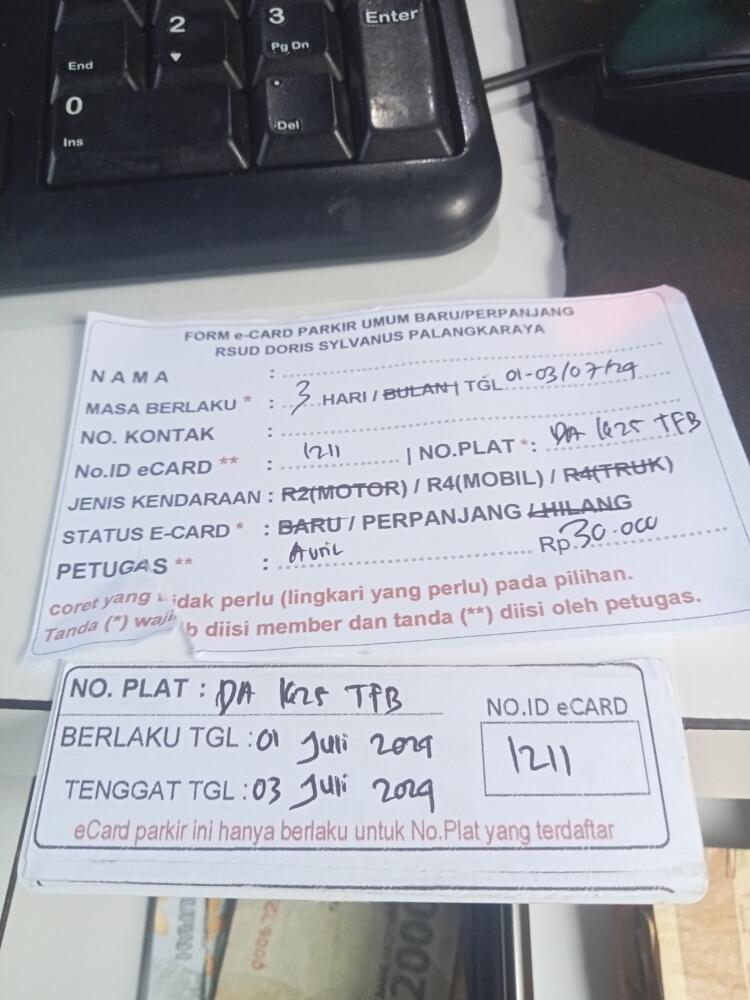 End
2
3
Pg Dn
Enter
0
Ins
.
Del
FORM e-CARD PARKIR UMUM BARU/PERPANJANG
RSUD DORIS SYLVANUS PALANGKARAYA
NAMA :
MASA BERLAKU * : 3 HARI / BULAN | TGL 01-03/07/24
NO. KONTAK :
No.ID eCARD ** : 1211 | NO.PLAT *: DA 1625 TFB
JENIS KENDARAAN : R2(MOTOR) / R4(MOBIL) / R4(TRUK)
STATUS E-CARD * : BARU / PERPANJANG / HILANG
PETUGAS ** : Avril Rp 30.000
coret yang tidak perlu (lingkari yang perlu) pada pilihan.
Tanda (*) wajib diisi member dan tanda (**) diisi oleh petugas.
NO. PLAT : DA 1625 TFB
NO.ID eCARD
BERLAKU TGL : 01 Juli 2024
1211
TENGGAT TGL : 03 Juli 2024
eCard parkir ini hanya berlaku untuk No.Plat yang terdaftar